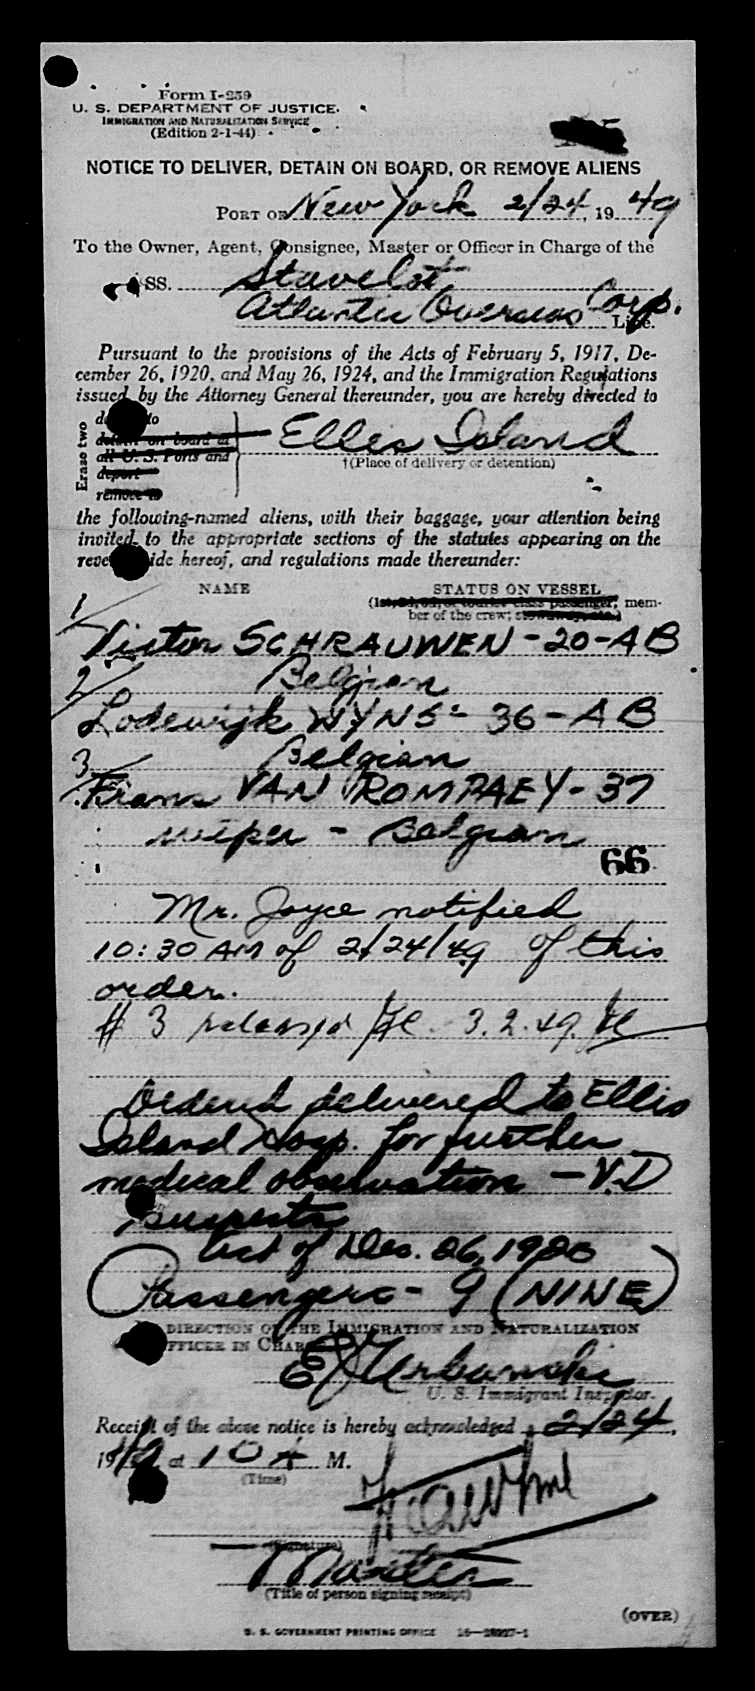 Form I-259
U. S. DEPARTMENT OF JUSTICE
IMMIGRATION AND NATURALIZATION SERVICE
(Edition 2-1-44)
NOTICE TO DELIVER, DETAIN ON BOARD, OR REMOVE ALIENS
PORT OF New York 2/24, 1949
To the Owner, Agent, Consignee, Master or Officer in Charge of the
SS. Stavelot
Atlantic Overseas Corp. Line.
Pursuant to the provisions of the Acts of February 5, 1917, De-
cember 26, 1920, and May 26, 1924, and the Immigration Regulations
issued by the Attorney General thereunder, you are hereby directed to
Erase two
to
detain on board at
all U. S. Ports and
deport
remove to
Ellis Island
†(Place of delivery or detention)
the following-named aliens, with their baggage, your attention being
invited to the appropriate sections of the statutes appearing on the
reve ide hereof, and regulations made thereunder:
NAME STATUS ON VESSEL
(1st, 2d, 3d, or tourist class passenger, mem-
ber of the crew, stowaway, etc.)
1/
Victor SCHRAUWEN - 20 - AB
2/ Belgian
Lodewijk WYNS - 36 - AB
3/ Belgian
Frans VAN ROMPAEY - 37
wiper - Belgian
66
Mr. Joyce notified
10:30 AM of 2/24/49 of this
order.
# 3 released 3.2.49.
Ordered delivered to Ellis
Island Hosp. for further
medical observation - V.D
suspects
Act of Dec. 26, 1920
Passengers - 9 (NINE)
DIRECTION OF THE IMMIGRATION AND NATURALIZATION
OFFICER IN CHAR
E J Urbanski
U. S. Immigrant Inspector.
Receipt of the above notice is hereby acknowledged 2/24,
1949 at 10 A M.
(Time)
(Signature)
Master
(Title of person signing receipt)
(OVER)
U. S. GOVERNMENT PRINTING OFFICE 16—28927-1